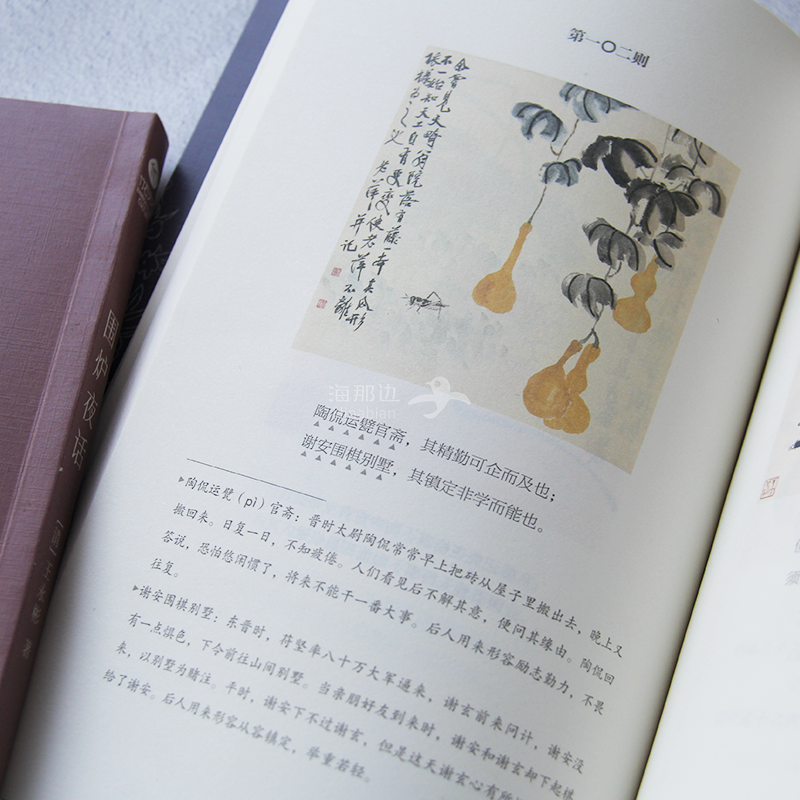 第一〇二则
海那边
陶侃运甓官斋，其精勤可企而及也；
谢安围棋别墅，其镇定非学而能也。
▸陶侃运甓（pì）官斋：晋时太尉陶侃常常早上把砖从屋子里搬出去，晚上又
搬回来。日复一日，不知疲倦。人们看见后不解其意，便问其缘由。陶侃回
答说，恐怕悠闲惯了，将来不能干一番大事。后人用来形容励志勤力，不畏
往复。
▸谢安围棋别墅：东晋时，苻坚率八十万大军逼来，谢玄前来问计，谢安没
有一点惧色，下令前往山间别墅。当亲朋好友到来时，谢安和谢玄却下起棋
来，以别墅为赌注。平时，谢安下不过谢玄，但是这天谢玄心有所
给了谢安。后人用来形容从容镇定，举重若轻。
围炉夜话
［清］王永彬 著